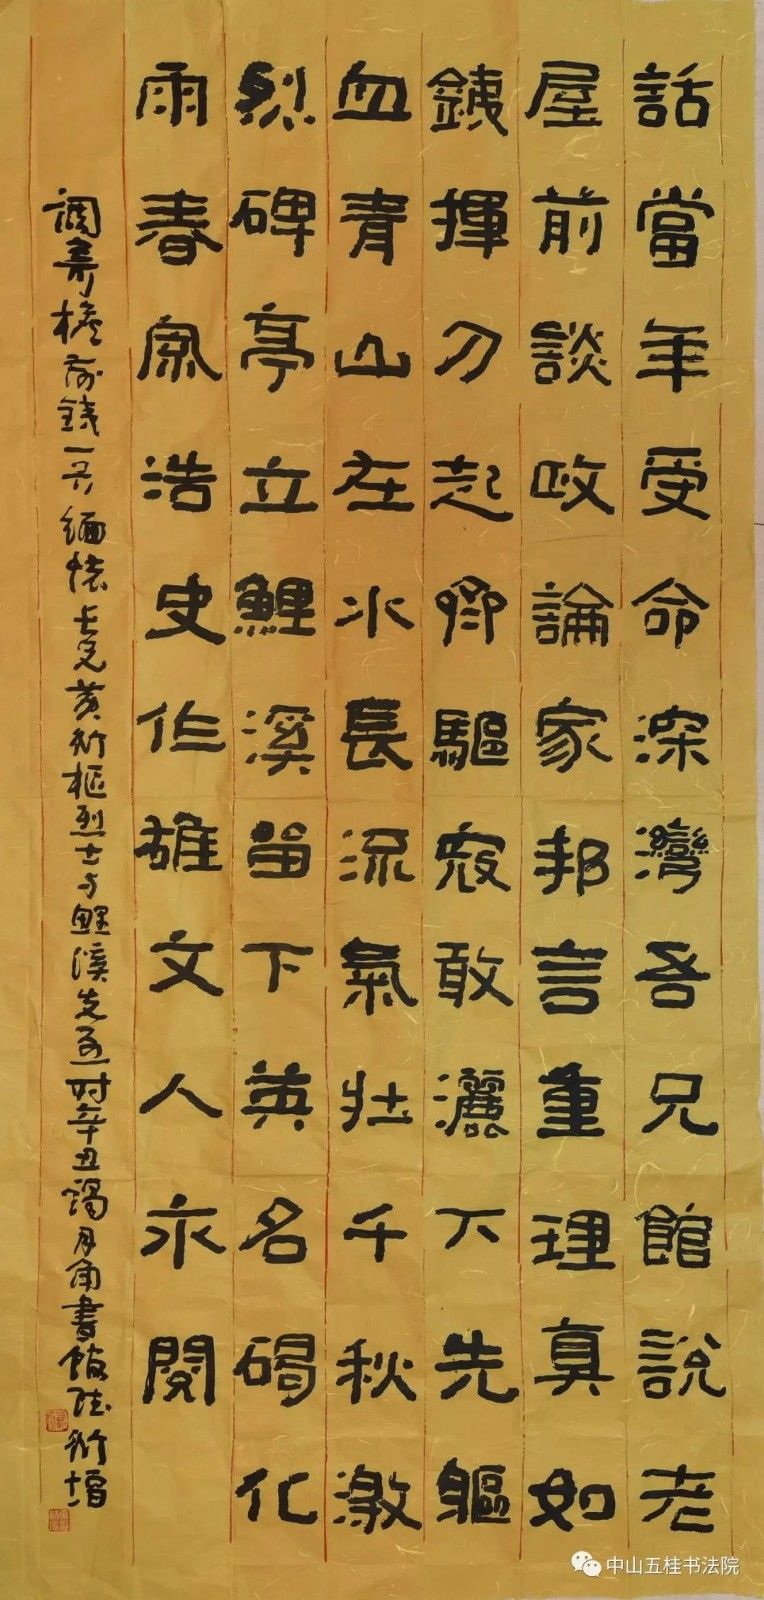 話當年受命深灣吾兄館說老
屋前談政論家邦言重理真如
鐵揮刀起獅驅寇敢灑下先軀
血青山在水長流氣壯千秋激
烈碑亭立鯉溪留下英名碣化
雨春風浩史作雄文人永閱
調寄檐前鐵一只緬懷長兄黃衍樞烈士與鯉溪先烈時辛丑臘月角書館陸衍增
中山五桂书法院